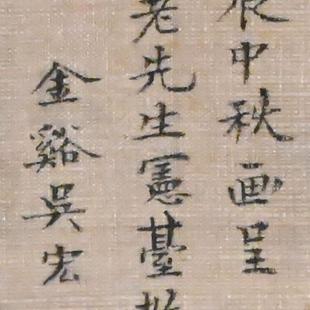 辰中秋画呈
老先生憲臺
金谿吳宏